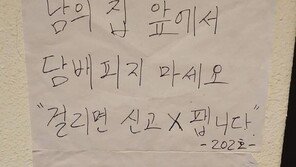 남의 집 앞에서
담배피지 마세요
"걸리면 신고X 팹니다"
-202호-